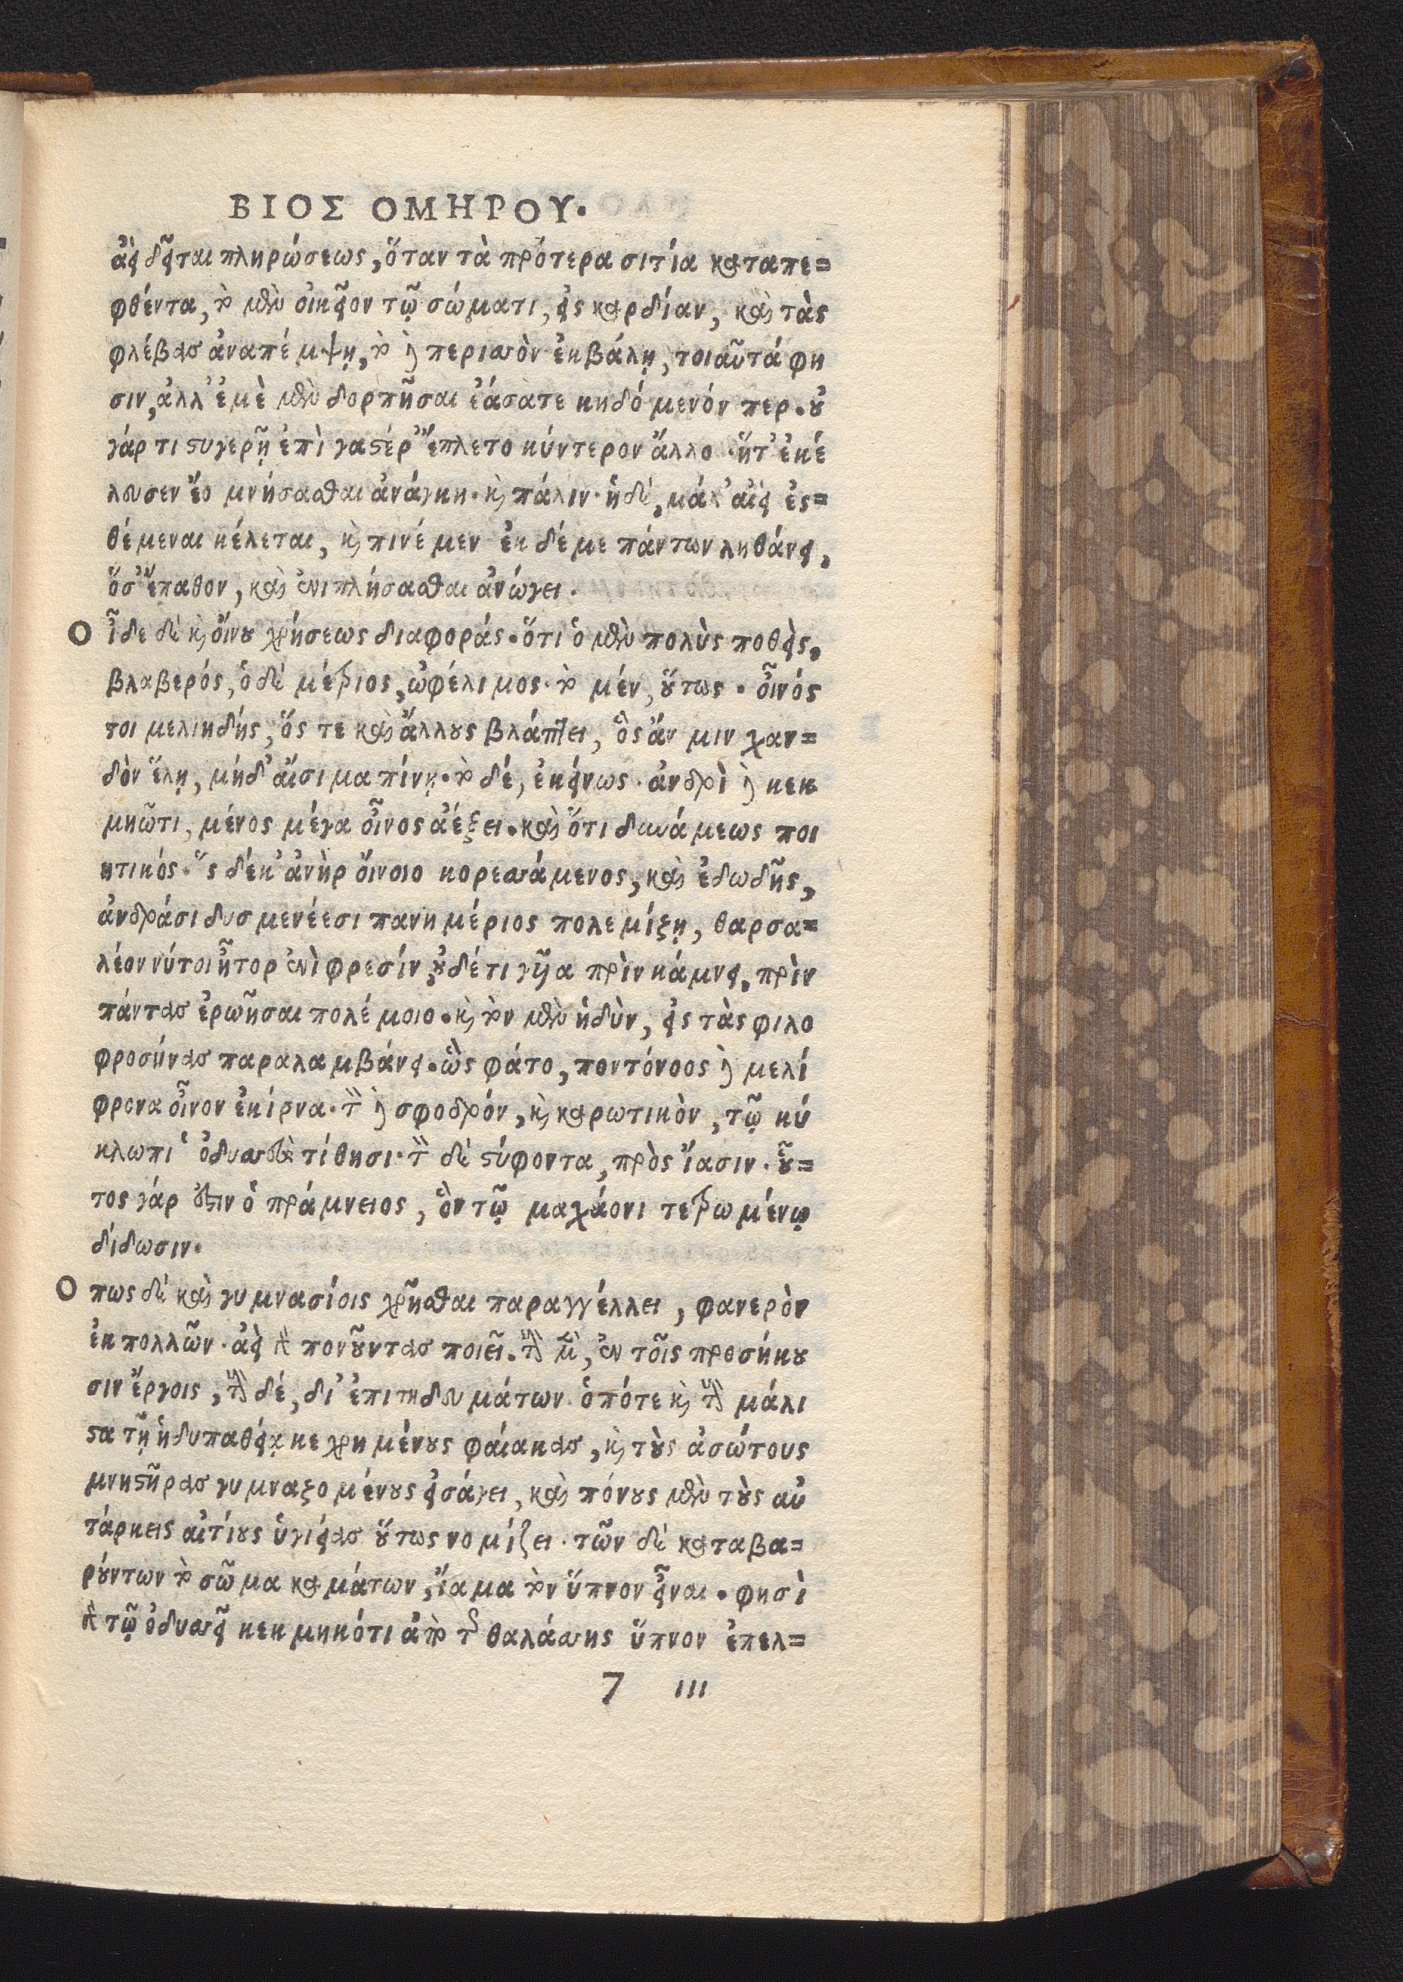 ΒΙΟΣ ΟΜΗΡΟΥ.
ἀεὶ δεῖται πληρώσεως, ὅταν τὰ πρότερα σιτία καταπε=
φθέντα, τὸ μὲν οἰκεῖον τῷ σώματι, εἰς καρδίαν, καὶ τὰς
φλέβας ἀναπέμψῃ, τὸ δὲ περισσὸν ἐκβάλῃ, τοιαῦτά φη
σιν, ἀλλ' ἐμὲ μὲν δορπῆσαι ἐάσατε κηδόμενόν περ. οὐ
γάρ τι στυγερῇ ἐπὶ γαστέρ' ἔπλετο κύντερον ἄλλο. ἥτ' ἐκέ
λευσεν ἕο μνήσασθαι ἀνάγκη. καὶ πάλιν. ἡ δὲ, μάλ' αἰεὶ ἐς=
θέμεναι κέλεται, καὶ πινέμεν ἐκ δέ με πάντων ληθάνει,
ὅσ' ἔπαθον, καὶ ἐνιπλήσασθαι ἀνώγει.
Οἶδε δὲ καὶ οἴνου χρήσεως διαφοράς. ὅτι ὁ μὲν πολὺς ποθεὶς,
βλαβερός, ὁ δὲ μέτριος, ὠφέλιμος. τὸ μέν, οὕτως. οἶνός
τοι μελιηδής, ὅς τε καὶ ἄλλους βλάπτει, ὃς ἄν μιν χαν=
δὸν ἕλῃ, μήδ' αἴσιμα πίνῃ. τὸ δέ, ἐκείνως. ἀνδρὶ δὲ κεκ
μηῶτι, μένος μέγα οἶνος ἀέξει. καὶ ὅτι δυνάμεως ποι
ητικός. ὃς δέκ' ἀνὴρ οἴνοιο κορεσσάμενος, καὶ ἐδωδῆς,
ἀνδράσι δυσμενέεσι πανημέριος πολεμίξῃ, θαρσα=
λέον νύ τοι ἦτορ ἐνὶ φρεσίν, οὐδέ τι γυῖα πρὶν κάμνει, πρὶν
πάντας ἐρωῆσαι πολέμοιο. καὶ τὸν μὲν ἡδὺν, εἰς τὰς φιλο
φροσύνας παραλαμβάνει. ὣς φάτο, ποντόνοος δὲ μελί
φρονα οἶνον ἐκίρνα. τὸν δὲ σφοδρόν, καὶ καρωτικὸν, τῷ κύ
κλωπι ὁ ὀδυσσεὺς τίθησι. τὸν δὲ στύφοντα, πρὸς ἴασιν. οὗ=
τος γάρ ἐστιν ὁ πράμνειος, ὃν τῷ μαχάονι τετρωμένῳ
δίδωσιν.
Οπως δὲ καὶ γυμνασίοις χρῆσθαι παραγγέλλει, φανερὸν
ἐκ πολλῶν. ἀεὶ γὰρ πονοῦντας ποιεῖ. τοὺς μὲν, ἐν τοῖς προσήκου
σιν ἔργοις, τοὺς δέ, δι' ἐπιτηδευμάτων. ὁπότε καὶ τοὺς μάλι
στα τῇ ἡδυπαθείᾳ κεχρημένους φαίακας, καὶ τοὺς ἀσώτους
μνηστῆρας γυμναζομένους εἰσάγει, καὶ πόνους μὲν τοὺς αὐ
τάρκεις αἰτίους ὑγιείας οὕτως νομίζει. τῶν δὲ καταβα=
ρύντων τὸ σῶμα καμάτων, ἴαμα τὸν ὕπνον εἶναι. φησὶ
γὰρ τῷ ὀδυσσεῖ κεκμηκότι ἀπὸ τῆς θαλάσσης ὕπνον ἐπελ=
7 iii